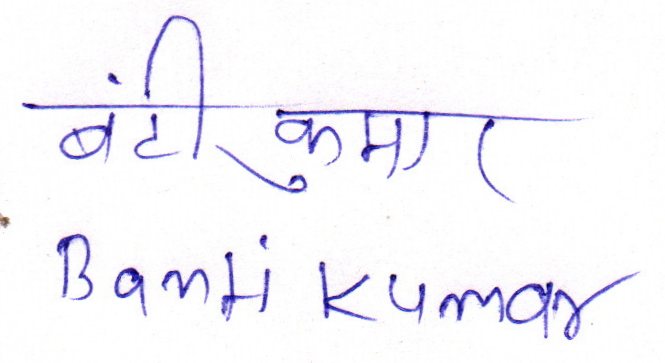 बंटी कुमार
Banti Kumar